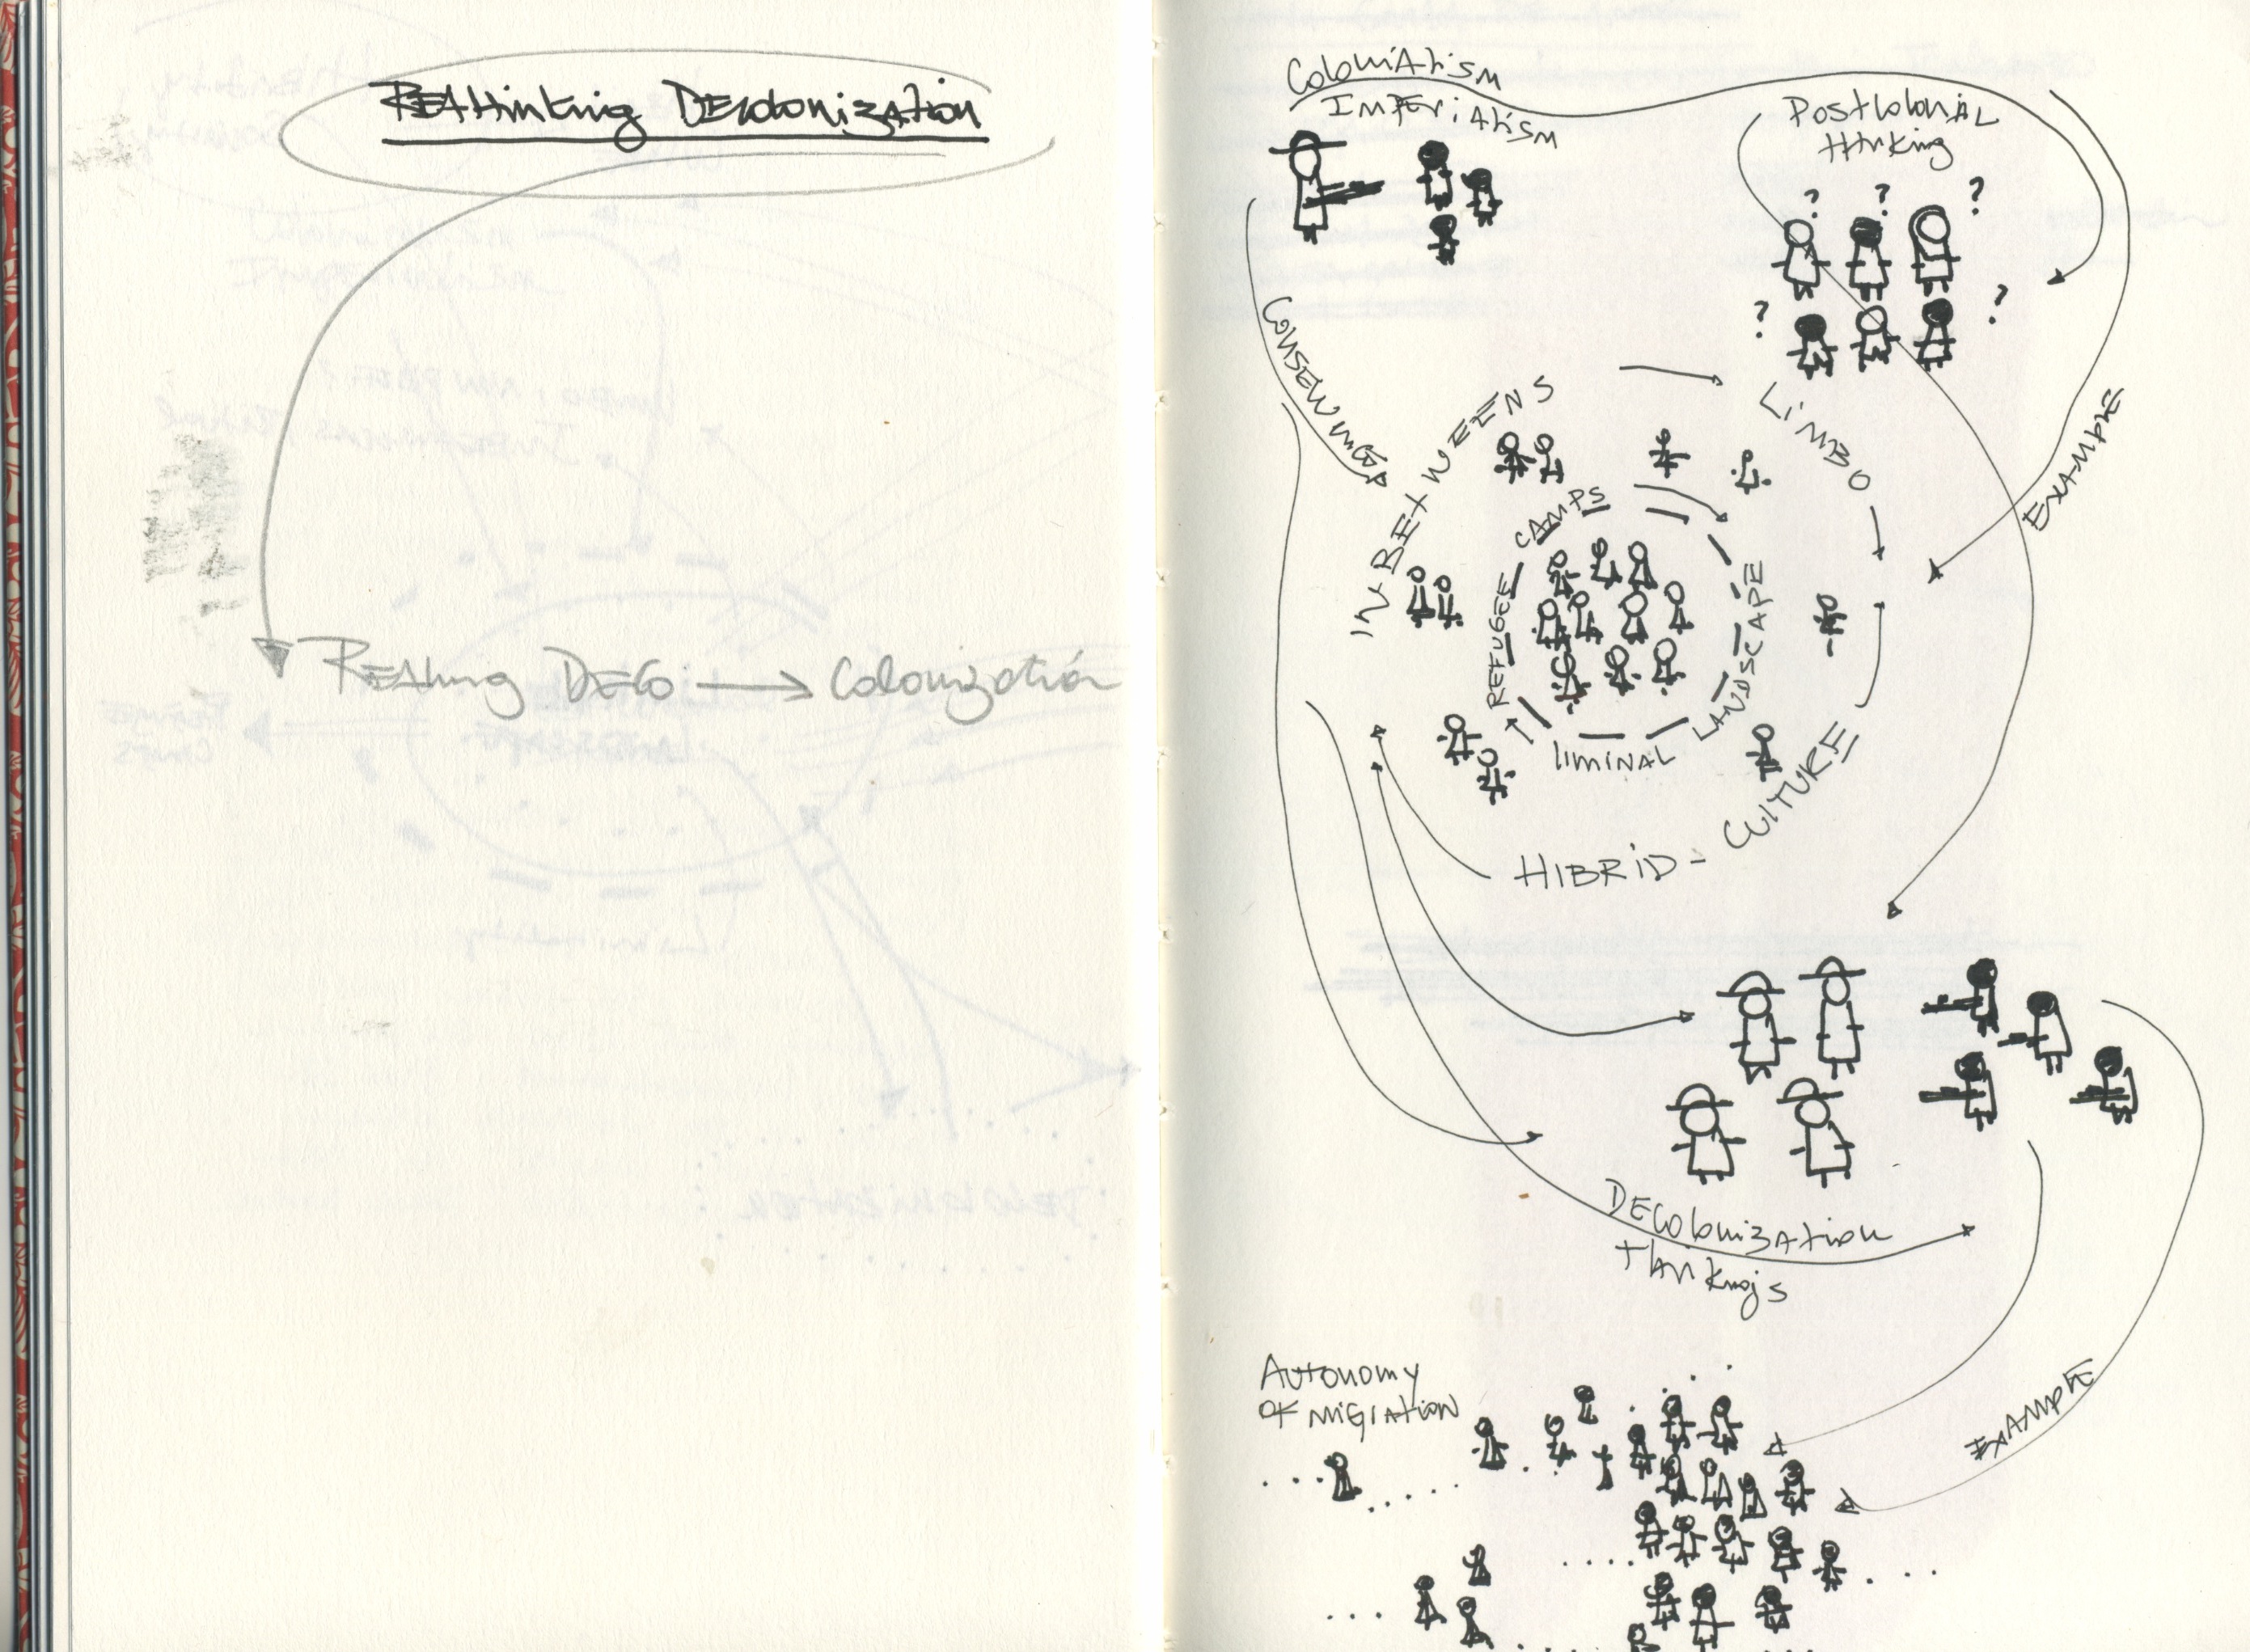 REAthinking Decolonization
Colonialism
Imperialism
Postcolonial
thinking
? ? ?
? ?
IN BETWEENS
LiMBO
EXAMPLE
CAMPS
REFUGEE
LANDSCAPE
liMiNAL
CUlTURE
HIBRiD -
DECOlonization
Autonomy
OF MiGrAtioN
EXAMPLE
DECO → Colonization